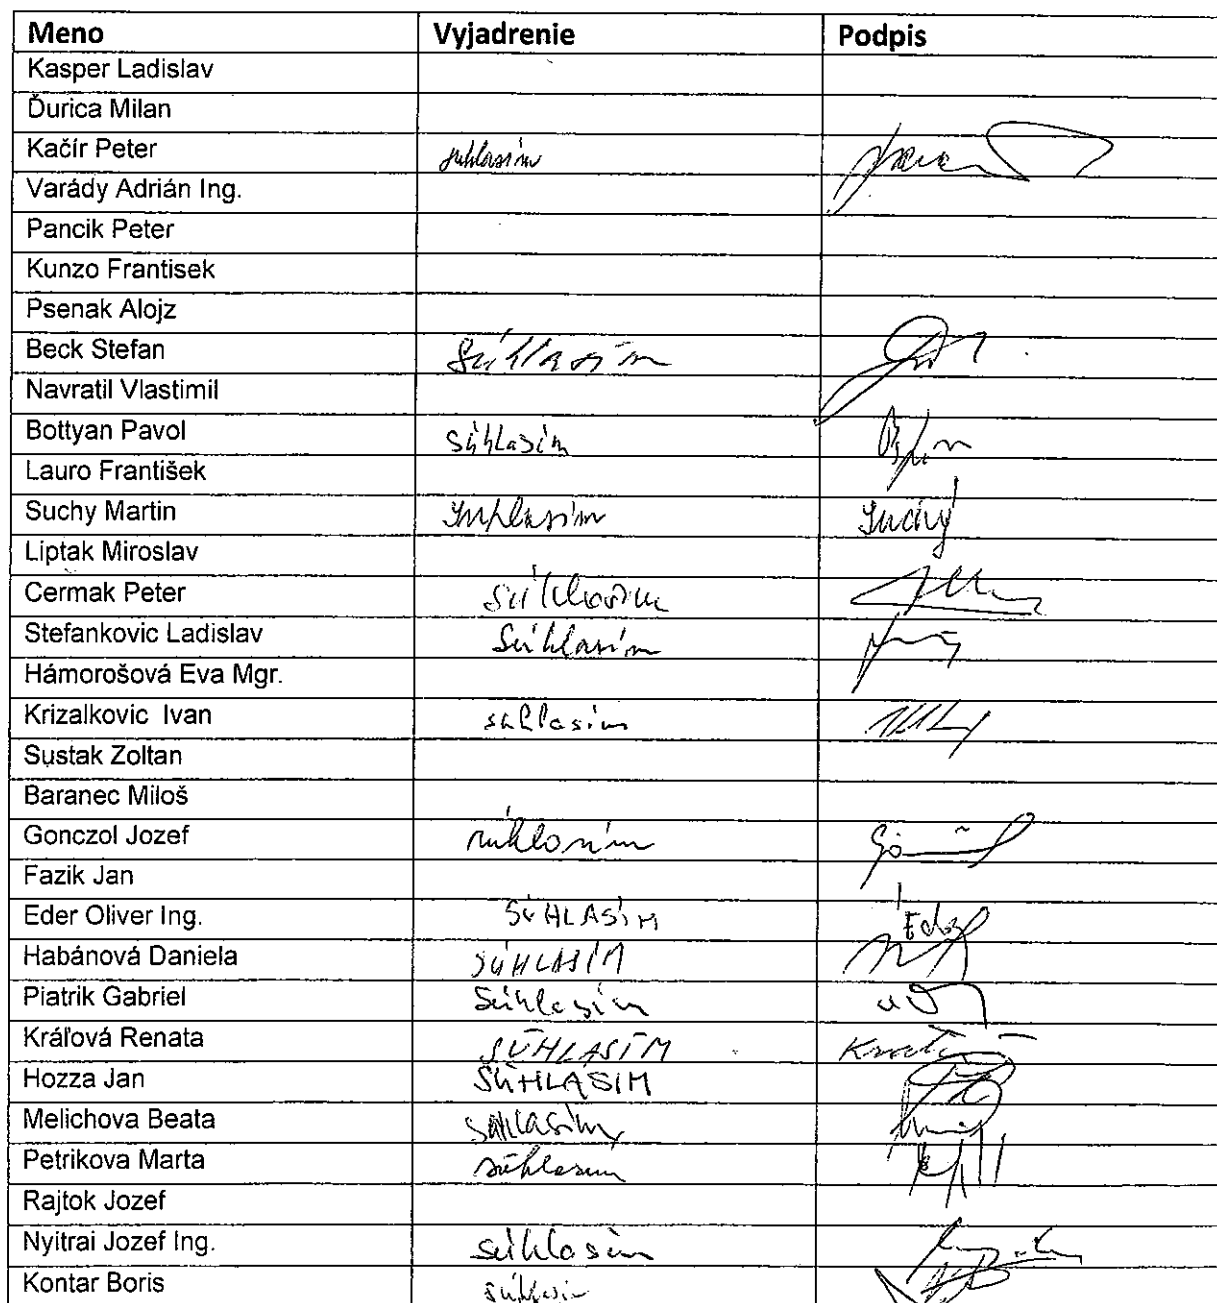 Meno Vyjadrenie Podpis
Kasper Ladislav
Ďurica Milan
Kačír Peter suhlasím
Varády Adrián Ing.
Pancik Peter
Kunzo Frantisek
Psenak Alojz
Beck Stefan Súhlasím
Navratil Vlastimil
Bottyan Pavol súhlasím
Lauro František
Suchy Martin súhlasím Suchý
Liptak Miroslav
Cermak Peter súhlasím
Stefankovic Ladislav Súhlasím
Hámorošová Eva Mgr.
Krizalkovic Ivan suhlasím
Sustak Zoltan
Baranec Miloš
Gonczol Jozef súhlasím
Fazik Jan
Eder Oliver Ing. SÚHLASÍM
Habánová Daniela SÚHLASÍM
Piatrik Gabriel Súhlasím
Kráľová Renata SÚHLASÍM
Hozza Jan SÚHLASIM
Melichova Beata súhlasím
Petrikova Marta súhlasím
Rajtok Jozef
Nyitrai Jozef Ing. súhlasím
Kontar Boris súhlasím